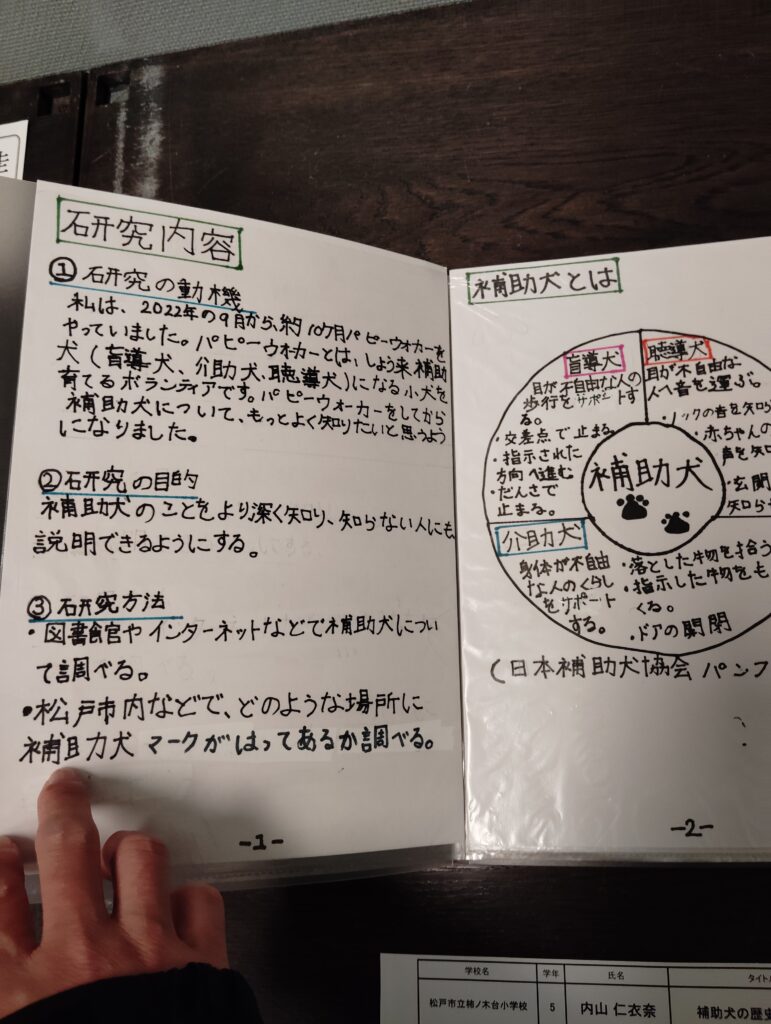 研究内容
①研究の動機
私は、2022年の9月から、約10ケ月パピーウォカーを
やっていました。パピーウォカーとは、しょう来、補助
犬(盲導犬、介助犬、聴導犬)になる小犬を
育てるボランティアです。パピーウォーカーをしてから
補助犬について、もっとよく知りたいと思うよう
になりました。
②研究の目的
補助犬のことをより深く知り、知らない人にも
説明できるようにする。
③研究方法
・図書館やインターネットなどで補助犬につい
て調べる。
・松戸市内などで、どのような場所に
補助犬マークがはってあるか調べる。
-1-
補助犬とは
盲導犬
目が不自由な人の
歩行をサポートす
る。
・交差点で止まる
・指示された
方向へ進む
・だんさで
止まる。
聴導犬
耳が不自由な
人へ音を運ぶ。
・ノックの音を知ら
・赤ちゃんの
声を知
・玄関
知ら
補助犬
介助犬
身体が不自由
な人のくらし
をサポート
する。
・落とした物を拾う
・指示した物をも
くる。
・ドアの開閉
(日本補助犬協会 パンフ
-2-
学校名 学年 氏名 タイト
松戸市立柿ノ木台小学校 5 内山 仁衣奈 補助犬の歴史